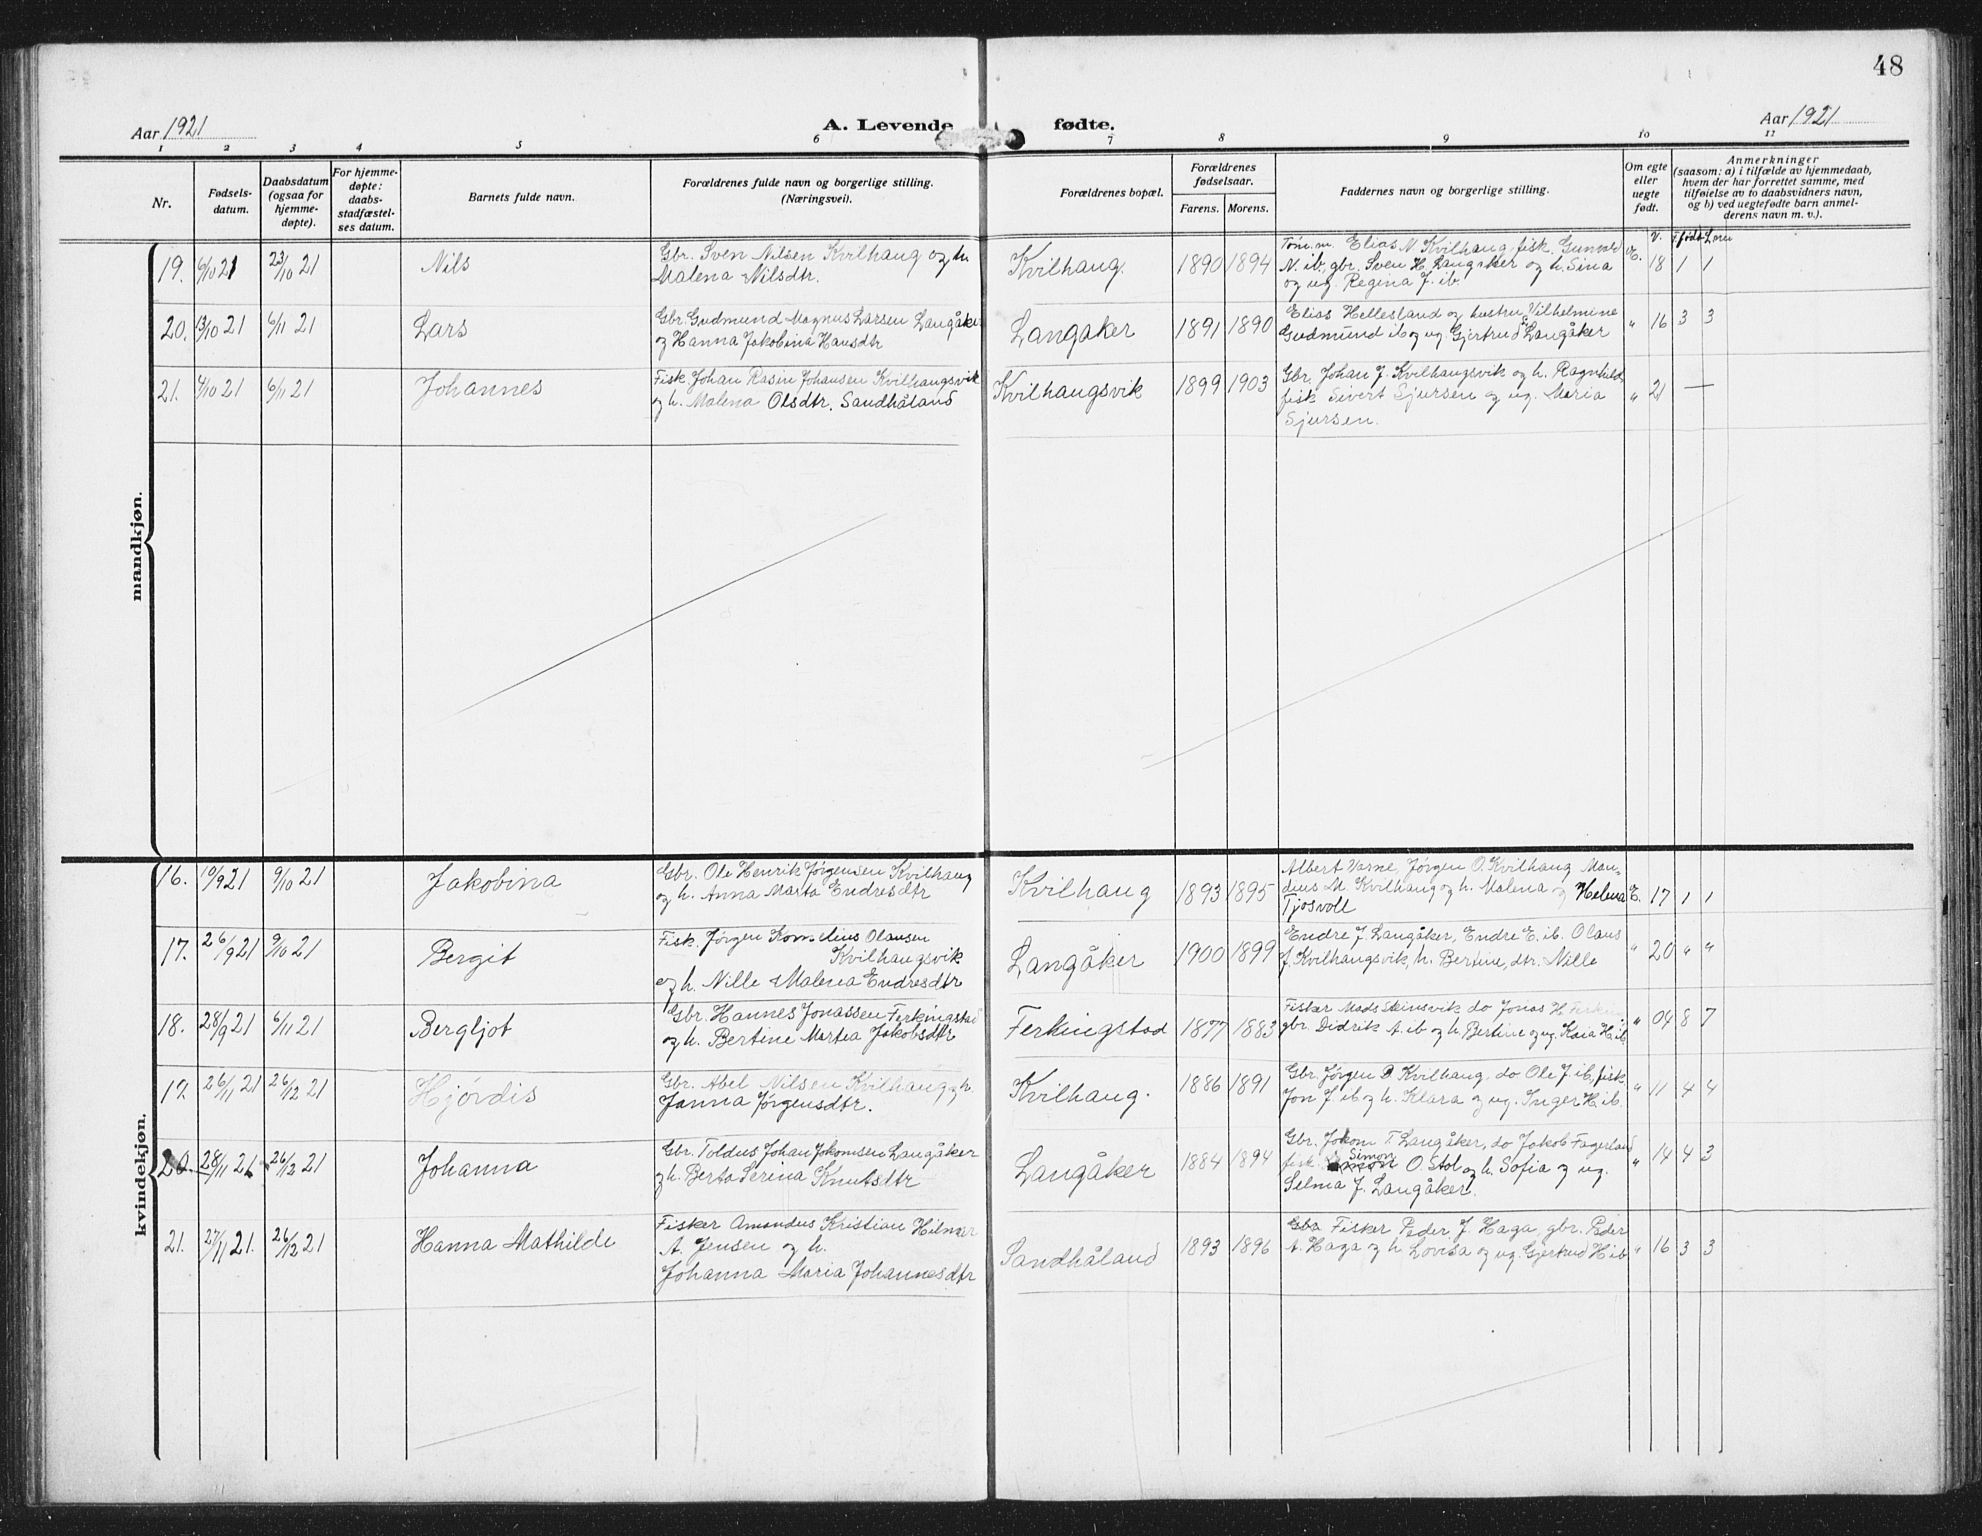 48
Aar 1921
A. Levende fødte.
Aar 1921
1 2 3 4 5 6 7 8 9 10 11
Nr.
Fødsels-
datum.
Daabsdatum
(ogsaa for
hjemme-
døpte).
For hjemme-
døpte:
daabs-
stadfæstel-
ses datum.
Barnets fulde navn.
Forældrenes fulde navn og borgerlige stilling.
(Næringsvei).
Forældrenes bopæl.
Forældrenes
fødselsaar.
Farens. Morens.
Faddernes navn og borgerlige stilling.
Om egte
eller
uegte
født.
Anmerkninger
(saasom: a) i tilfælde av hjemmedaab,
hvem der har forrettet samme, med
tilføielse av to daabsvidners navn,
og b) ved uegtefødte barn anmel-
derens navn m. v.).
mandkjøn.
V. født Lever
19. 6/10 21 23/10 21 Nils
Gbr. Sven Nilsen Kvilhaug og h.
Malena Nilsdtr.
Kvilhaug. 1890 1894
Tøm.m. Elias N Kvilhaug, fisk. Gunvald
N. ib, gbr. Sven H. Langåker og h. Sina
og ug. Regina J. ib.
E. 18 1 1
20. 13/10 21 6/11 21 Lars
Gbr. Gudmund Magnus Larsen Langåker
og Hanna Jakobina Hansdtr
Langåker 1891 1890
Elias Hellesland og hustru Vilhelmine
Gudmund ib og ug. Gjertrud Langåker
" 16 3 3
21. 4/10 21 6/11 21 Johannes
Fisk. Johan Rasin Johansen Kvilhaugsvik
og h. Malena Olsdtr. Sandhåland
Kvilhaugsvik 1899 1903
Gbr. Johan J. Kvilhaugsvik og h. Ragnhild,
fisk Sivert Sjursen og ug. Maria
Sjursen.
" 21 —
kvindekjøn.
16. 10/9 21 9/10 21 Jakobina
Gbr. Ole Henrik Jørgensen Kvilhaug
og h. Anna Marta Endresdtr
Kvilhaug 1893 1895
Albert Vasne, Jørgen O. Kvilhaug Man-
dius M. Kvilhaug og h. Malena og Helena
Tjosvoll
E. 17 1 1
17. 26/9 21 9/10 21 Bergit
Fisk. Jørgen Kornelius Olausen
Kvilhaugsvik
og h. Nille Malena Endresdtr
Langåker 1900 1899
Endre J. Langåker, Endre E. ib. Olaus
J. Kvilhaugsvik, h. Bertine, dtr. Nille
" 20 " "
18. 28/9 21 6/11 21 Bergljot
Gbr. Hannes Jonassen Ferkingstad
og h. Bertine Martea Jakobsdtr
Ferkingstad 1877 1883
Fisker Mads Steinsvik do Jonas H Ferking
gbr. Didrik A. ib og h. Bertine og ug. Kaia H ib.
" 04 8 7
19. 26/11 21 26/12 21 Hjórdis
Gbr. Abel Nilsen Kvilhaug og h.
Janna Jørgensdtr.
Kvilhaug. 1886 1891
Gbr. Jørgen B Kvilhaug, do Ole J ib, fisk.
Jon J. ib og h. Klara og ug. Inger H ib.
" 11 4 4
20. 28/11 21 26/12 21 Johanna
Gbr. Toldus Johan Jokomsen Langåker
og h. Berta Serina Knutsdtr
Langåker 1884 1894
Gbr. Jokom T. Langåker, do Jakob Fagerland
fisk Simon O. Stol og h. Sofia og ug.
Selma J. Langåker.
" 14 4 3
21. 27/11 21. 26/12 21 Hanna Mathilde
Fisker Amandus Kristian Hilmar
A. Jensen og h.
Johanna Maria Johannesdtr
Sandhåland 1893 1896
Gbr Fisker Peder J. Haga, gbr. Peder
A. Haga og h. Lovisa og ug. Gjertrud H ib
" 16 3 3